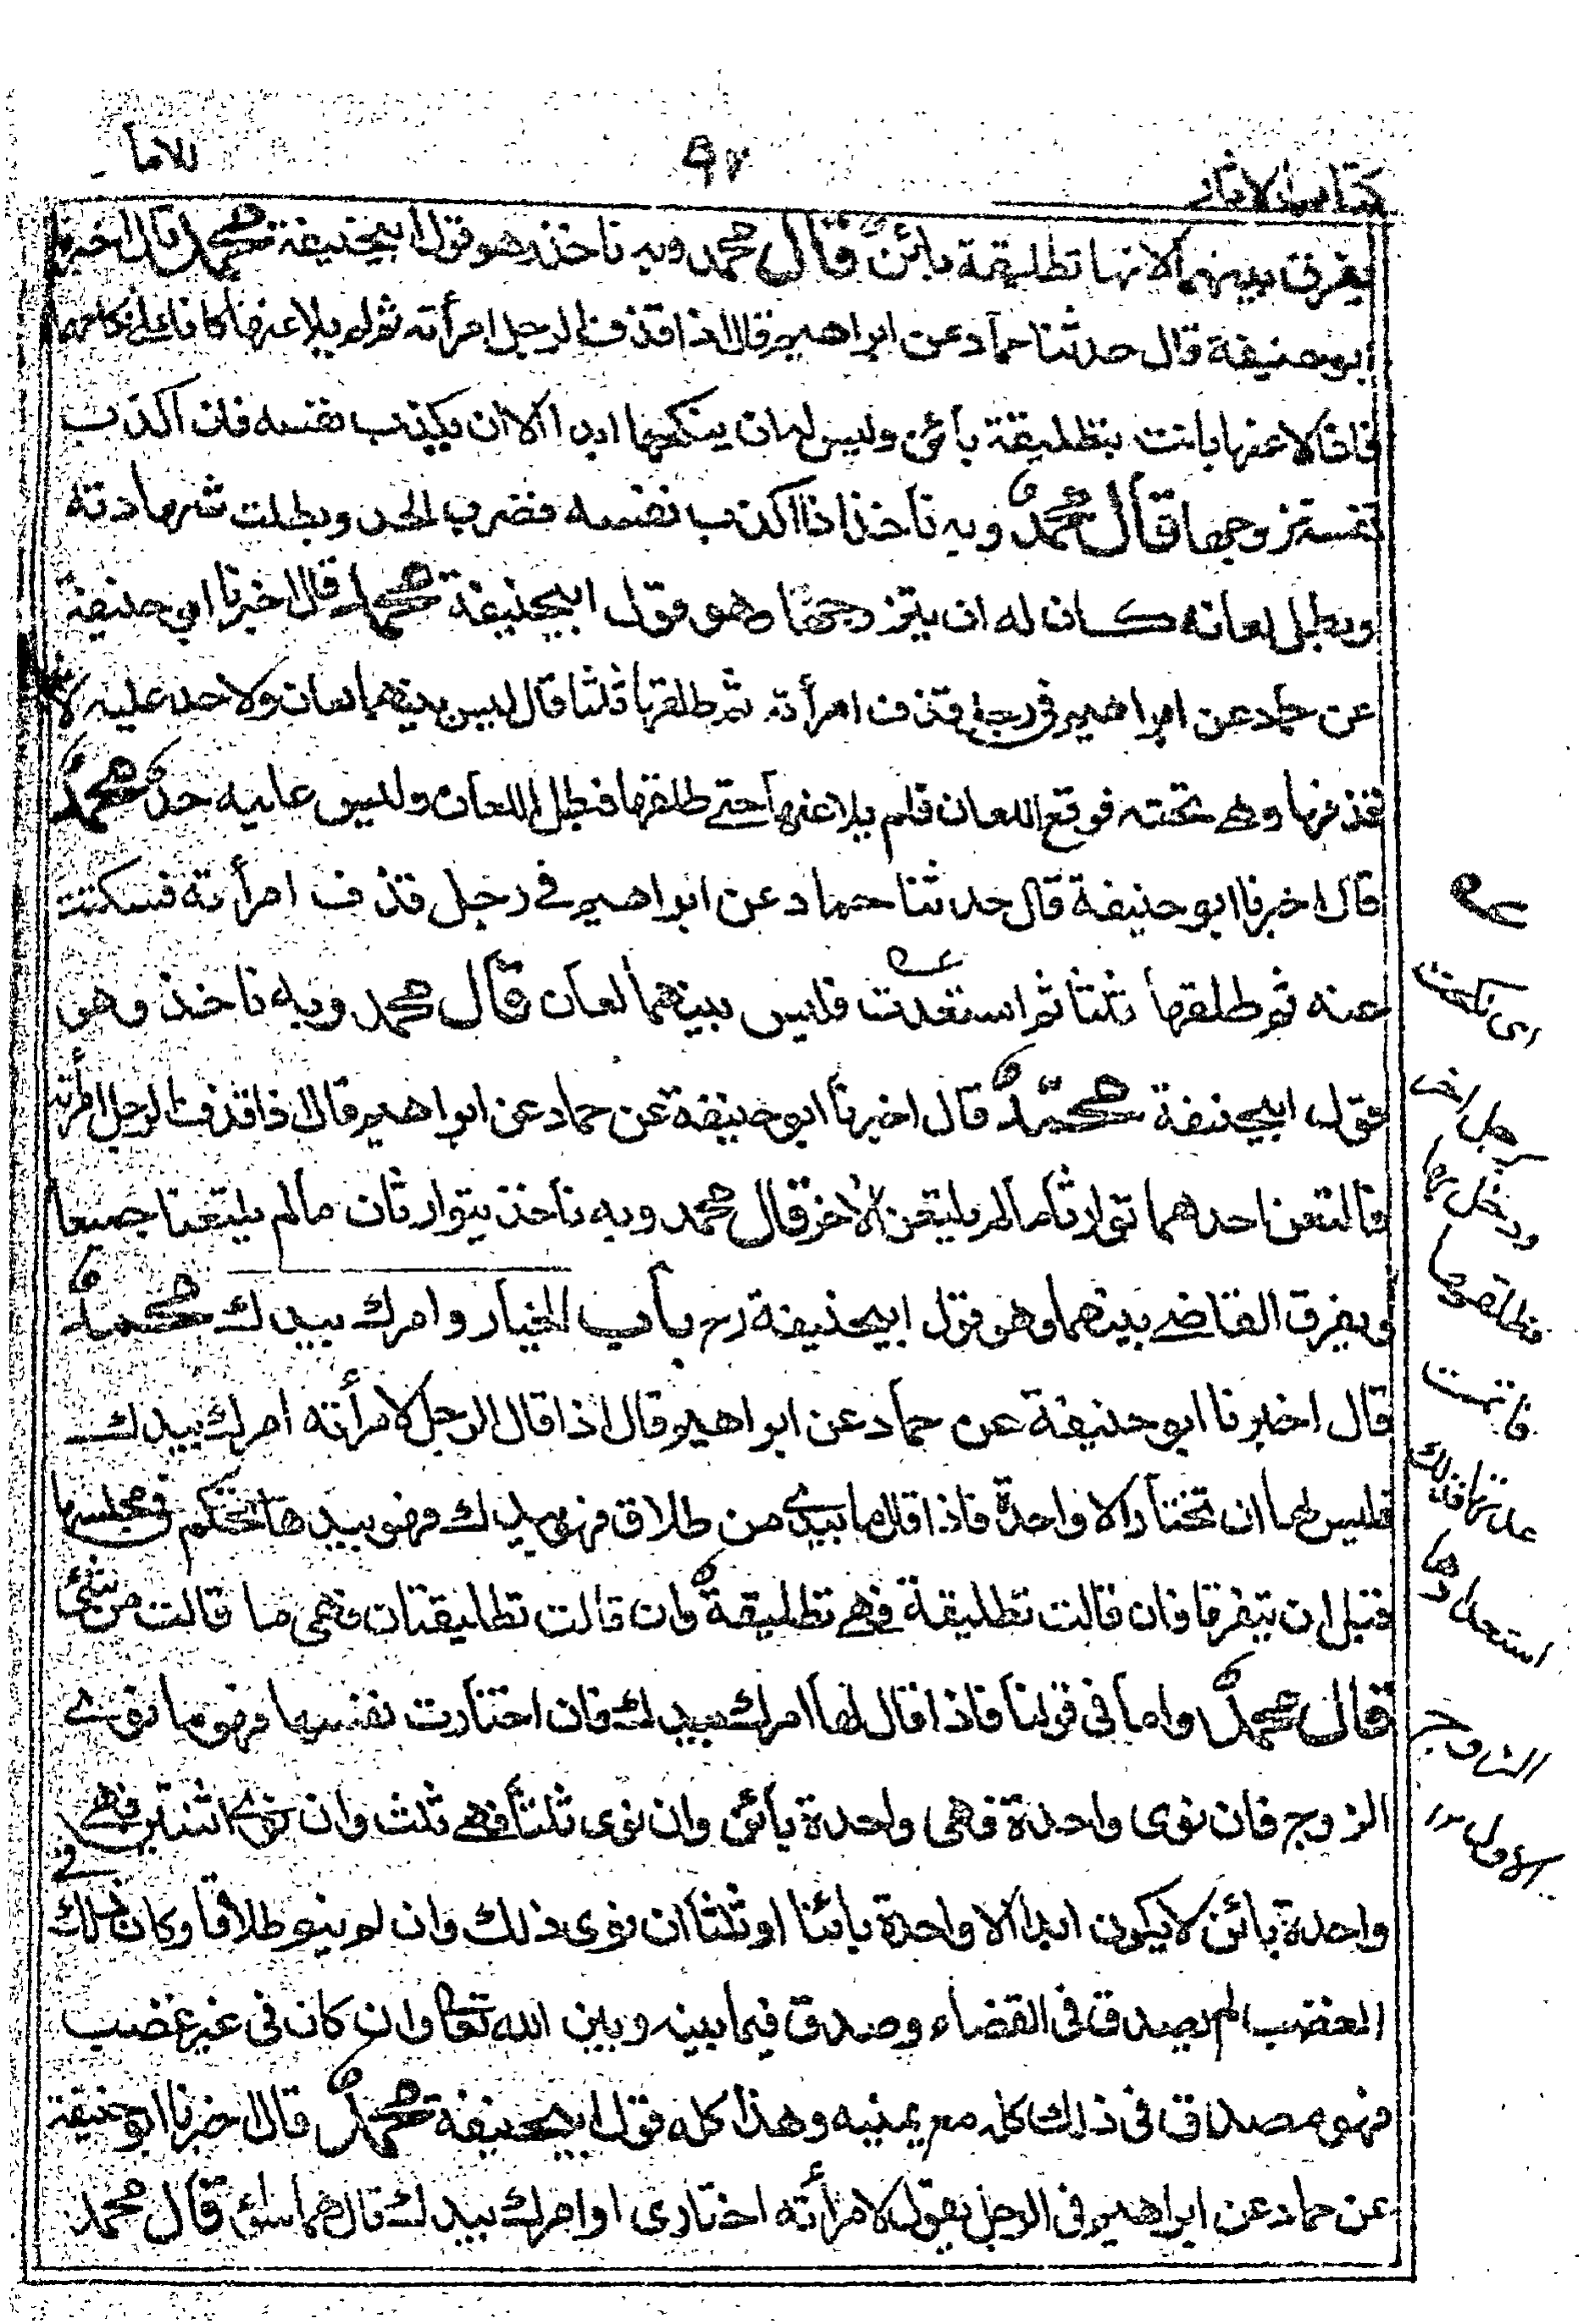 كتاب الاثار ٩٢ للاما
يفرق بينهما لانها تطليقة بائن قال محمد وبه ناخذ وهو قول ابيحنيفة محمد قال اخبرنا
ابو حنيفة قال حدثنا حماد عن ابراهيم قال اذا قذف الرجل امرأته ثم لم يلاعنها كانا على نكاحهما
فاذا لاعنها بانت بتطليقة بائن وليس له ان ينكحها ابدا الا ان يكذب نفسه فان اكذب
نفسه تزوجها قال محمد وبه ناخذ اذا اكذب نفسه فضرب الحد وبطلت شهادته
وبطل لعانه كان له ان يتزوجها وهو قول ابيحنيفة محمد قال اخبرنا ابو حنيفة
عن حماد عن ابراهيم في رجل قذف امرأته ثم طلقها ثلثا قال ليس بينهما لعان ولا حد عليه لانه
قذفها وهي تحته فوقع اللعان فلم يلاعنها حتى طلقها فبطل اللعان وليس عليه حد محمد
قال اخبرنا ابو حنيفة قال حدثنا حماد عن ابراهيم في رجل قذف امرأته فسكتت
عنه ثم طلقها ثلثا ثم استعدت فليس بينهما لعان قال محمد وبه ناخذ وهو
قول ابيحنيفة محمد قال اخبرنا ابو حنيفة عن حماد عن ابراهيم قال اذا قذف الرجل امرأته
فالتعن احدهما توارثا ما لم يلتعن الاخر قال محمد وبه ناخذ يتوارثان ما لم يلتعنا جميعا
ويفرق القاضي بينهما وهو قول ابيحنيفة رح باب الخيار وامرك بيدك محمد
قال اخبرنا ابو حنيفة عن حماد عن ابراهيم قال اذا قال الرجل لامرأته امرك بيدك
فليس لها ان تختار الا واحدة فاذا قال ما بيدي من طلاق فهو بيدك فهو بيدها تحكم في مجلسها
قبل ان يتفرقا فان قالت تطليقة فهي تطليقة وان قالت تطليقتان فهي ما قالت من شيء
قال محمد واما في قولنا فاذا قال لها امرك بيدك فان اختارت نفسها فهو ما نوى
الزوج فان نوى واحدة فهي واحدة بائن وان نوى ثلثا فهي ثلث وان نوى اثنتين فهي
واحدة بائن لا يكون ابدا الا واحدة بائنا او ثلثا ان نوى ذلك وان لم ينو طلاقا وكان ذلك في
الغضب لم يصدق في القضاء وصدق فيما بينه وبين الله تعالى وان كان في غير غضب
فهو مصدق في ذلك كله مع يمينه وهذا كله قول ابيحنيفة محمد قال اخبرنا ابو حنيفة
عن حماد عن ابراهيم في الرجل يقول لامرأته اختاري او امرك بيدك قال هما سواء قال محمد
اى نكحت
رجل اخر
ودخل بها
فطلقها
فاتمت
عدتها فذلك
استعدادها
الزوج
الاول